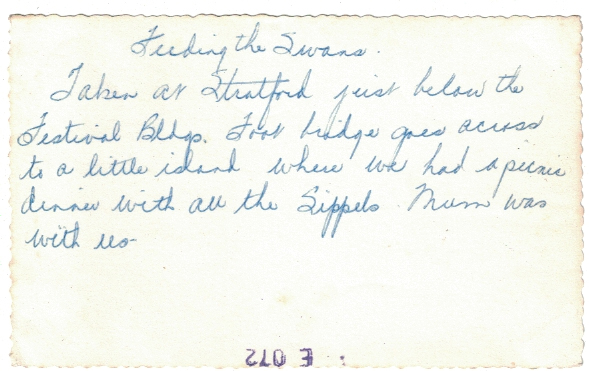 Feeding the Swans.
Taken at Stratford just below the
Festival Bldgs. Foot bridge goes across
to a little island where we had a picnic
dinner with all the Sippels. Mum was
with us-
E 072